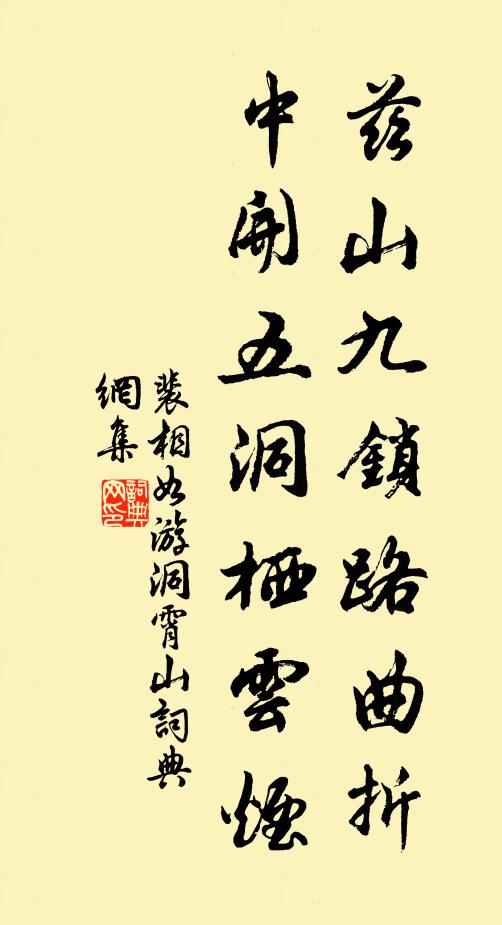 茲山九鎖路曲折
中開五洞栖雲煙
裴相如游洞霄山詞典
網集
詞典
网印